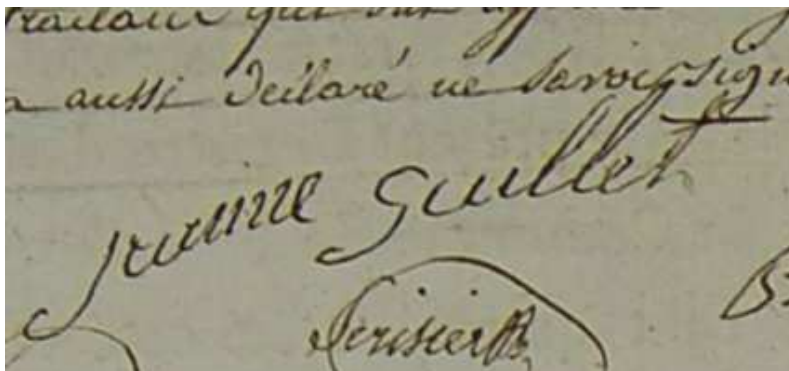 qui
a aussi déclaré ne savoir sign
jeanne Guillet
Serisier
B